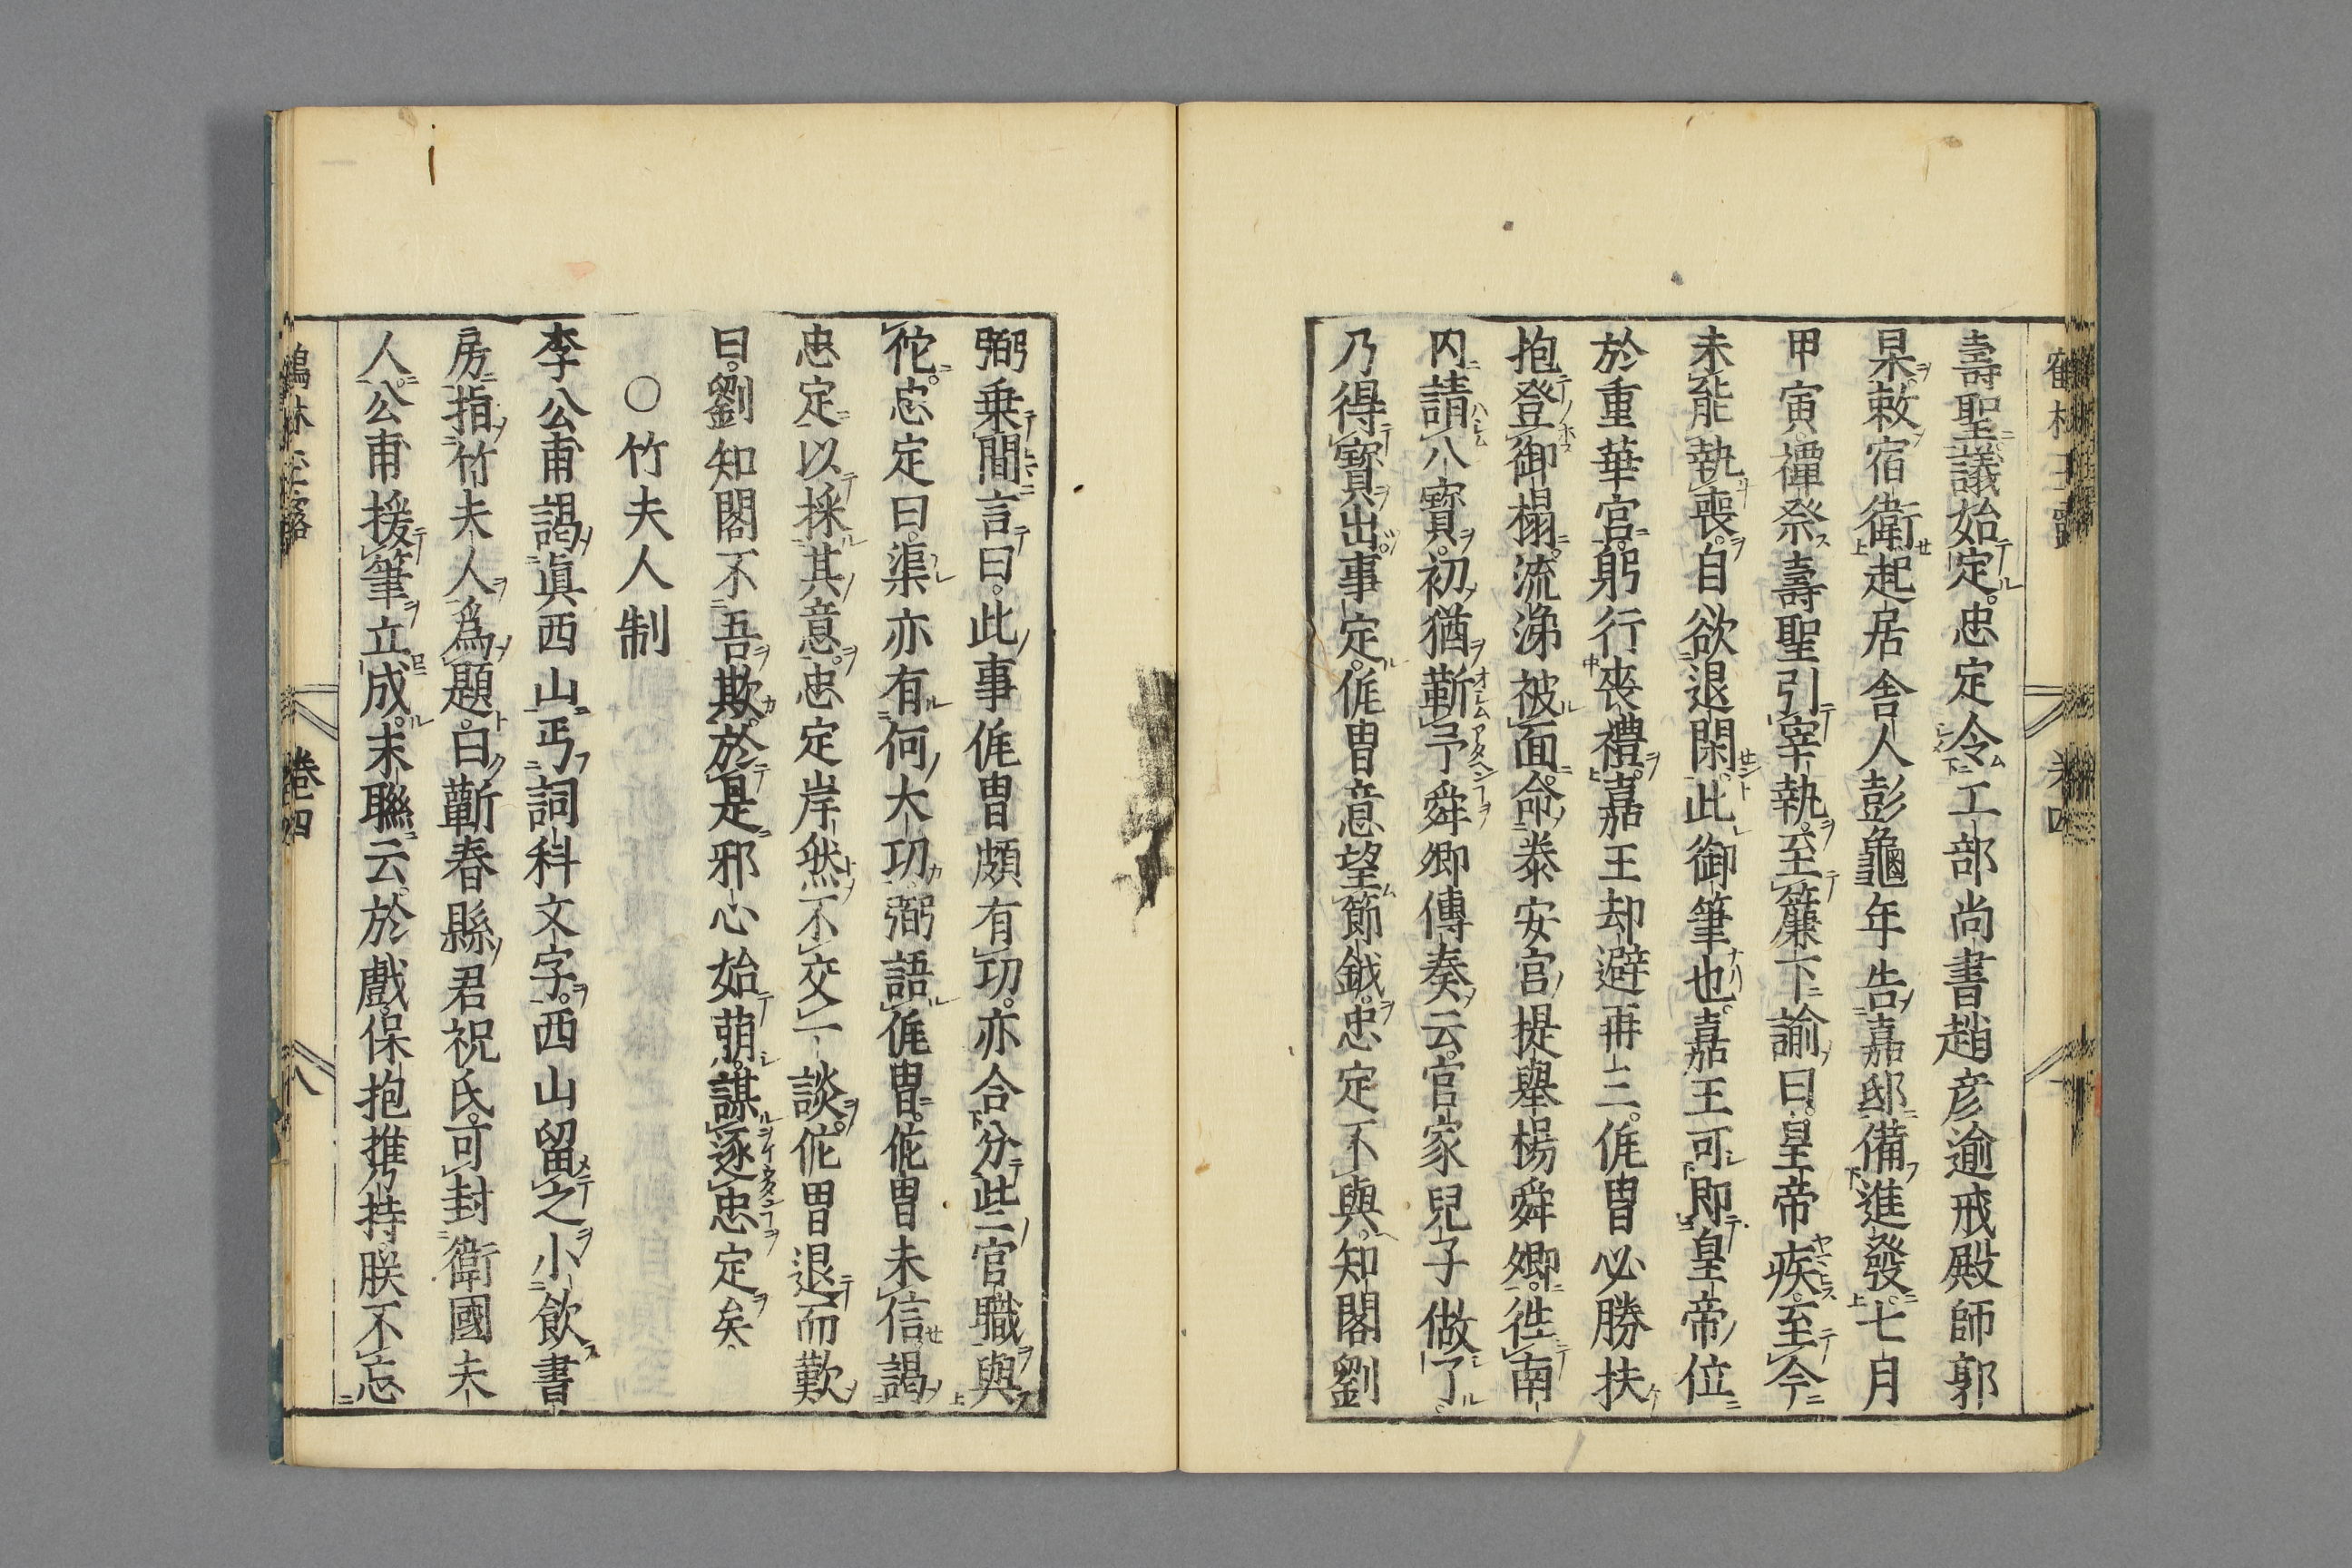 壽聖議始定忠定令工部尚書趙彦逾戒殿師郭
杲敕宿衛起居舎人彭龜年告嘉邸備進發七月
甲寅禫祭壽聖引宰執至簾下諭曰皇帝疾至今
未能執喪自欲退閑此御筆也嘉王可即皇帝位
於重華宮躬行喪禮嘉王却避再三侂胄必勝扶
抱登御榻流涕被面命泰安宮提舉楊舜卿徃南
内請八寳初猶靳予舜卿傳奏云官家兒子做了
乃得寳出事定侂胄意望節鉞忠定不與知閤劉
弼乗間言曰此事侂胄頗有功亦合分些官職與
佗忠定曰渠亦有何大功弼語侂胄侂胄未信謁
忠定以採其意忠定岸然不交一談侂胄退而歎
曰劉知閤不吾欺於是邪心始萌謀逐忠定矣
○竹夫人制
李公甫謁眞西山丐詞科文字西山留之小飲書
房指竹夫人爲題曰蘄春縣君祝氏可封衛國夫
人公甫援筆立成末聯云於戲保抱携持朕不忘
卷四
八